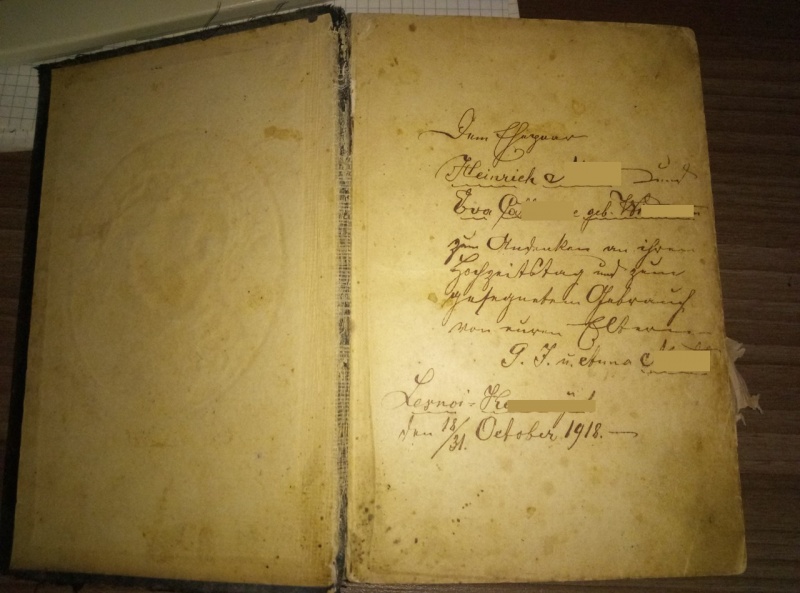 Dem Ehepaar
Heinrich und
Eva geb.
zum Andenken an ihren
Hochzeitstag und zum
gesegneten Gebrauch
von euren Eltern
G. J. u. Anna
Lesnoi-
den 18/31. October 1918.